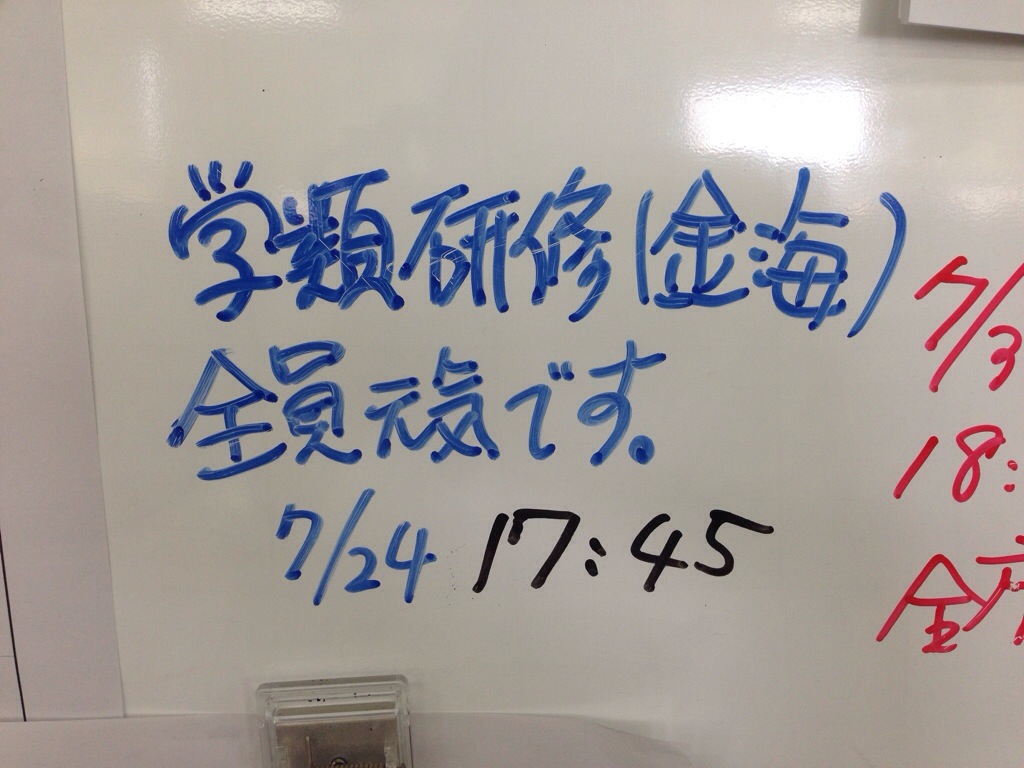 学類研修(金海)
全員元気です。
7/24 17:45
7/3
18: